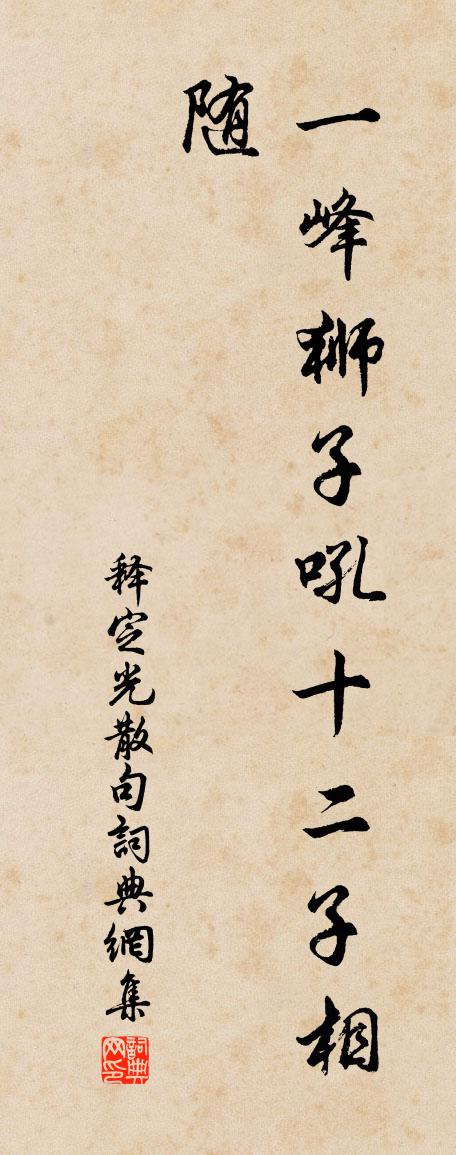 一峰狮子吼十二子相
随
释定光散句詞典網集
詞典网印